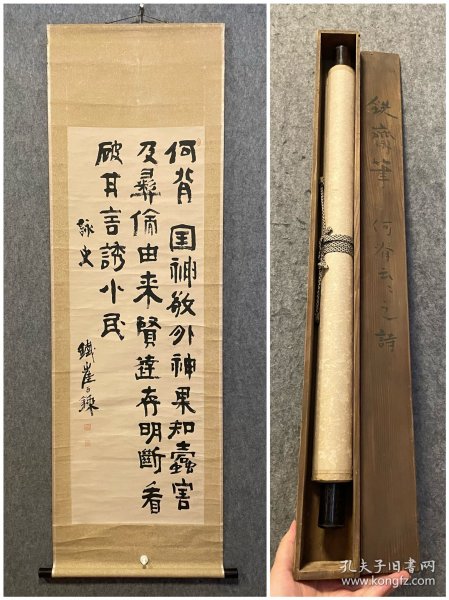 何背囯神敬外神果知蠹害
及彝倫由来賢達存明斷看
破其言誘小民
詠史
鐵崖百鍊
鉄齋筆 何背云々之詩
孔夫子旧书网
www.kongfz.com